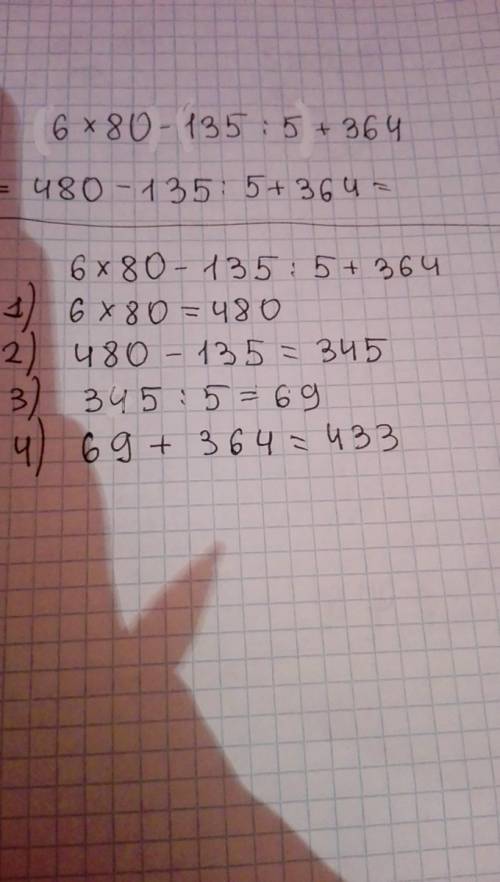 (6 × 80) - (135 : 5) + 364
= 480 - 135 : 5 + 364 =
6 × 80 - 135 : 5 + 364
1) 6 × 80 = 480
2) 480 - 135 = 345
3) 345 : 5 = 69
4) 69 + 364 = 433